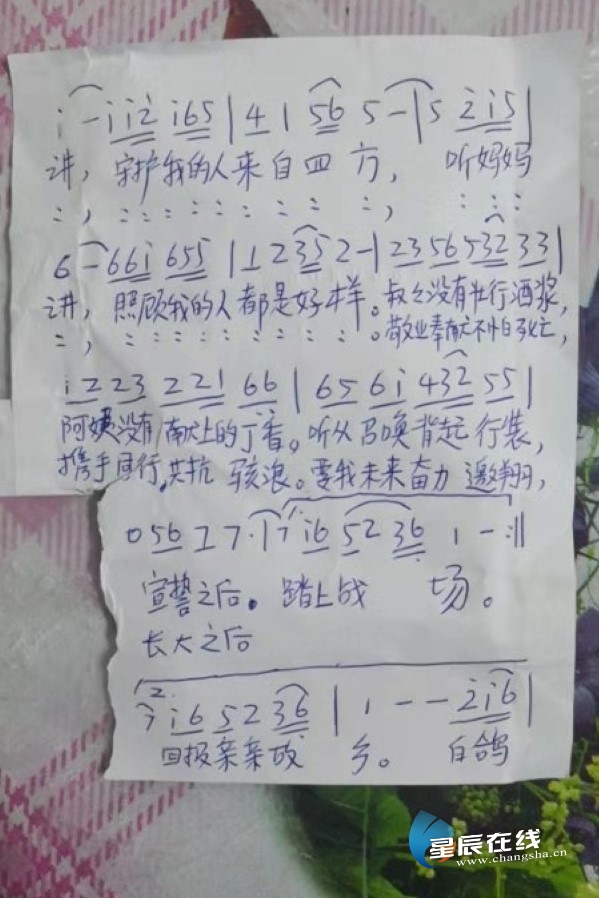 i - i i 2 i 6 5 | 4 1 5 6 5 - | 5 2 i 5 |
讲，守护我的人来自四方，听妈妈
:，: : : : : : : : :，: : :
6 - 6 6 i 6 5 5 | 1 2 3 5 2 - | 2 3 5 6 5 3 2 3 3 |
讲，照顾我的人都是好样。叔叔没有壮行酒浆，
:，: : : : : : : : :。敬业奉献不怕死亡，
i 2 2 3 2 2 1 6 6 | 6 5 6 i 4 3 2 5 5 |
阿姨没有献上的丁香。听从召唤背起行装，
携手同行，共抗骇浪。要我未来奋力遨翔，
0 5 6 2 7 · 1 7 i 6 5 2 3 6 1 - :||
宣誓之后。踏上战场。
长大之后
2.
7 i 6 5 2 3 6 | 1 - - 2 i 6 |
回报亲亲故乡。白鸽
星辰在线
www.changsha.cn